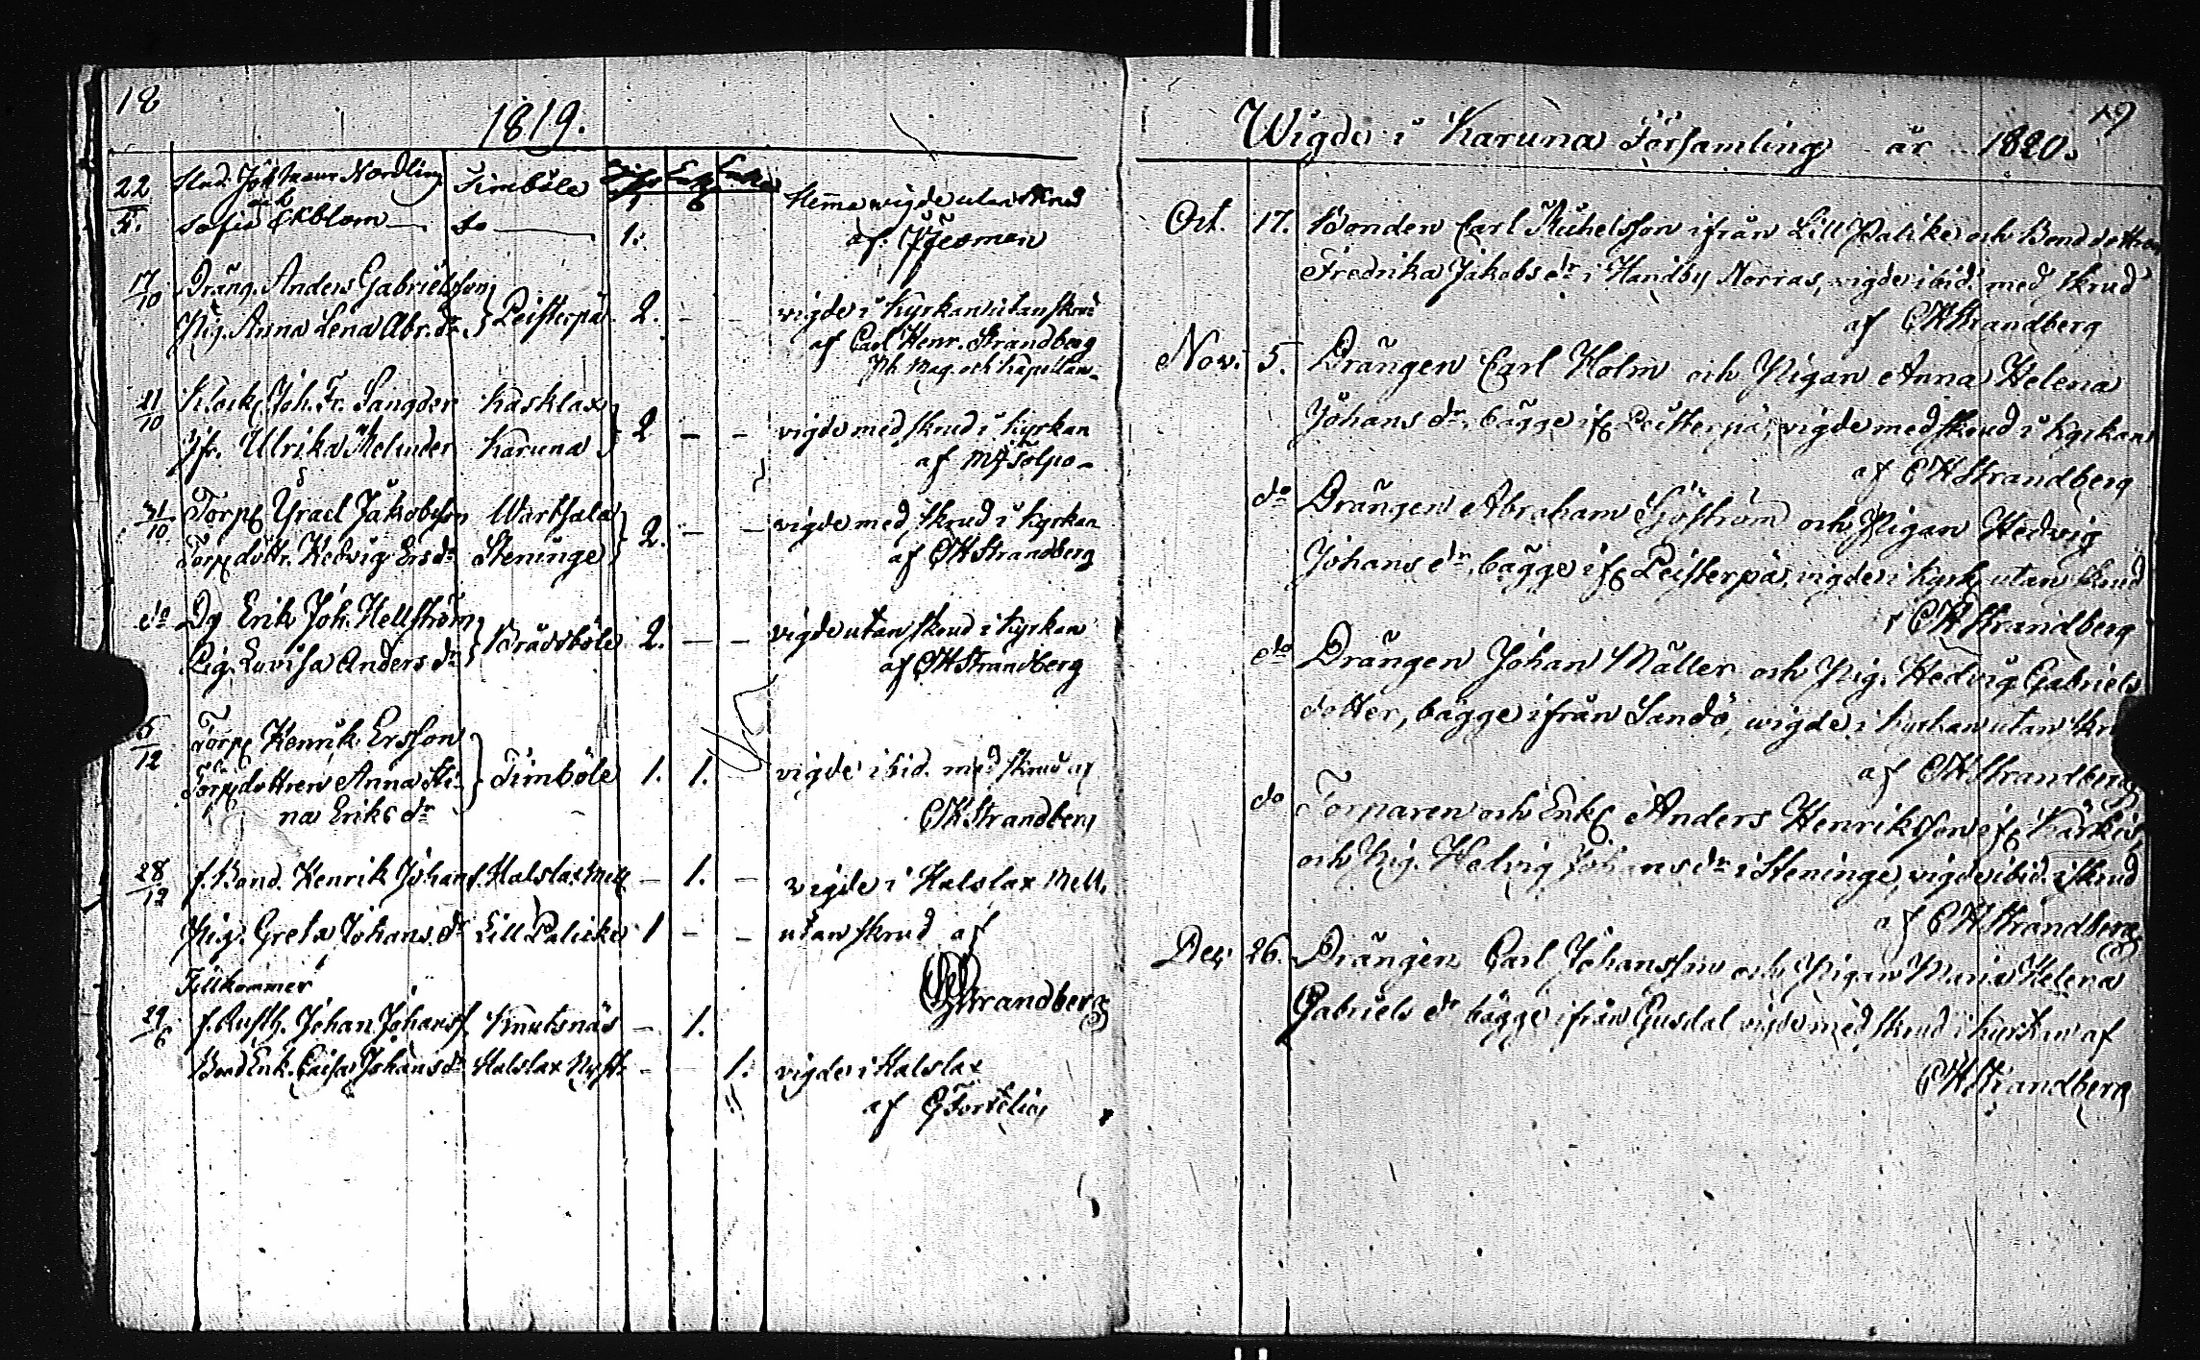 18
1819.
22/5. Stud. Johan Nordling Timböle
och
Sofia Ekblom do 1. hemma wigde utan skrud
af
17/10 Dräng. Anders Gabrielsson
Pig. Anna Lena Abr. dr Peisterpä 2. - - vigde i kyrkan utan skrud
af Carl Henr. Strandberg
Ph. Mag. och Kapellan
21/10 Klock. Joh. Fr. Sangder Kasklax
Jfr. Ulrika Melinder Karuna 2 - - vigde med skrud i kyrkan
af
31/10 Torp. Israel Jakobsson Wartsala
Torp.dottr. Hedvig Ersdr Steninge 2. - - vigde med skrud i kyrkan
af CHStrandberg
do Dg Erik Joh. Hellström
Pig. Lovisa Anders dr Brädböle 2. - - vigde utan skrud i kyrkan
af CHStrandberg
/12 Torp. Henrik Ersson
Torp.dottren Anna Sti- Timböle 1. 1. vigde ibid. med skrud af
na Eriks dr CHStrandberg
28/12 f. Bond. Henrik Johans. Halslax Mell. - 1. - vigde i Halslax Mell.
Pig. Greta Johans dr Lill Palicke 1 - - utan skrud af
CHStrandberg
Tillkommer
29/6 f. Rusth. Johan Johanss. Knutsnäs - 1.
Bond Enk. Caisa Johans dr Halslax - - 1. vigde i Halslax
af
19
Wigde i Karuna Församling år 1820.
Oct. 17. Bonden Carl Michelsson ifrån Lill Palike och Bonddottren
Fredrika Jakobs dr i Handby Norras, vigde ibid. med skrud
af CHStrandberg
Nov. 5. Drängen Carl Holm och Pigan Anna Helena
Johans dr, bägge if. Peisterpä, vigde med skrud i kyrkan
af CHStrandberg
do Drängen Abraham Sjöström och Pigan Hedvig
Johans dr, bägge if. Peisterpä, vigde i kyrk. utan skrud
CHStrandberg
do Drängen Johan Mäller och Pig. Hedvig Gabriels
dotter, bägge ifrån Sandö, wigde i kyrkan utan skr
af CHStrandberg
do Torparen och Enkl. Anders Henriksson if. Kärkis,
och Pig. Hedvig Johans dr i Steninge, vigde ibid. i skrud
af CHStrandberg
Dec. 26. Drängen Carl Johansson och Pigan Maria Helena
Gabriels dr bägge ifrån Gusdal vigde med skrud i kyrkan af
CHStrandberg